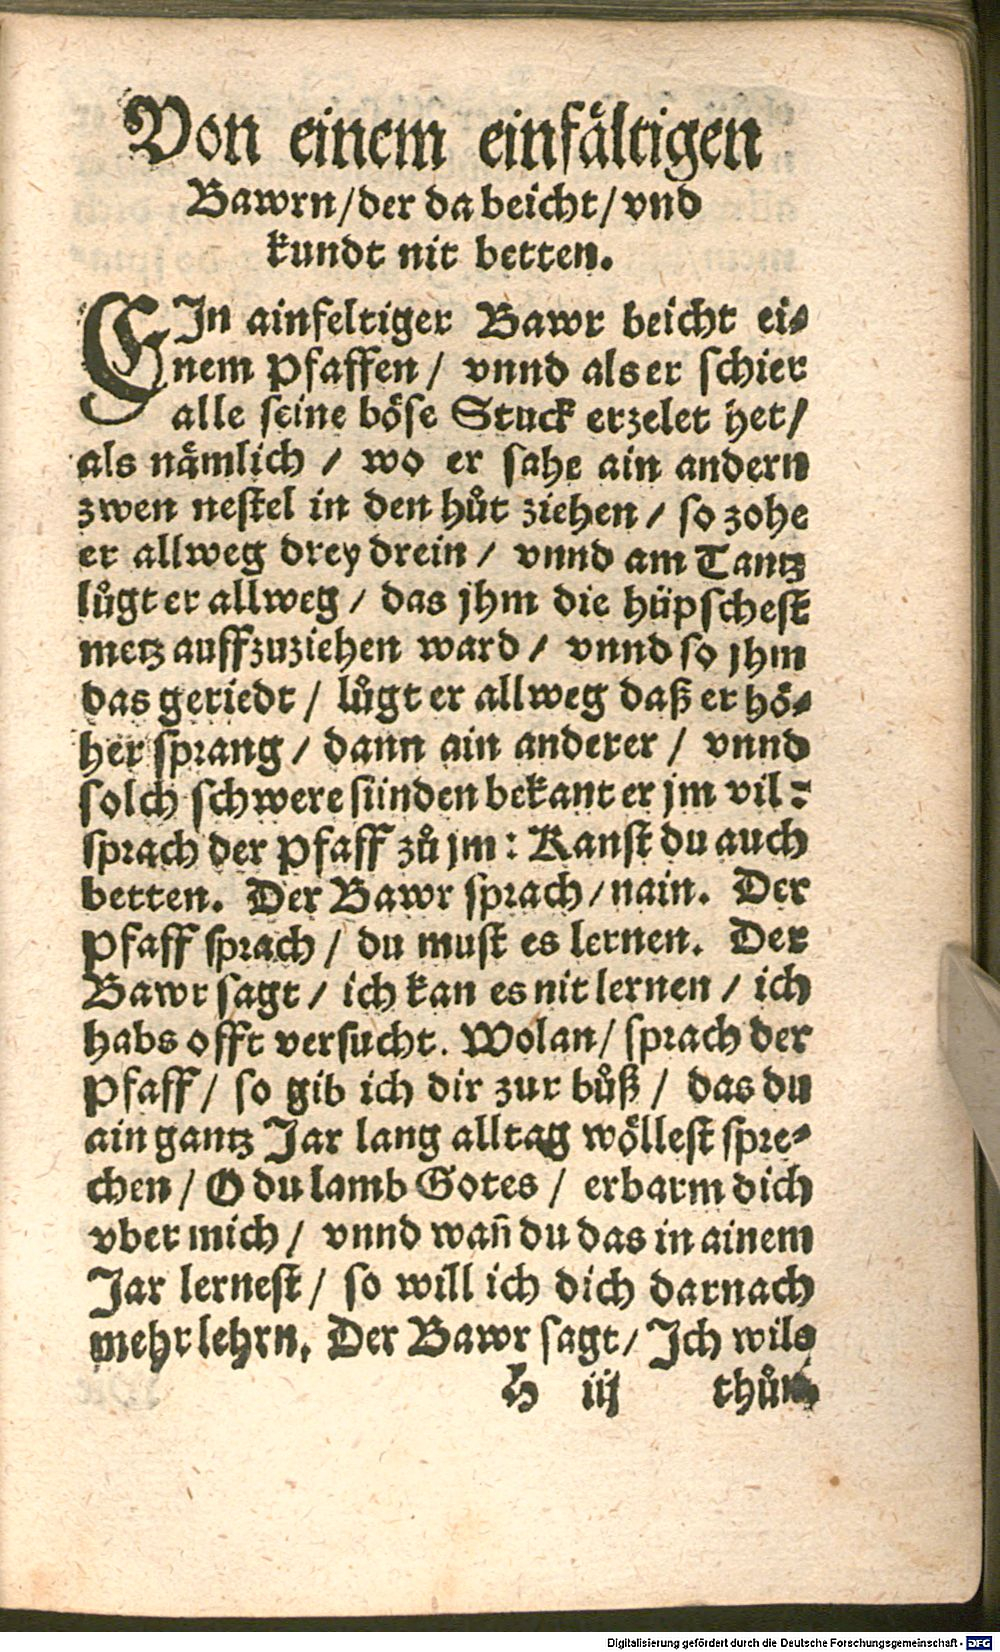 Von einem einfältigen
Bawrn/der da beicht/vnd
kundt nit betten.
EIn ainfeltiger Bawr beicht ei⸗
nem Pfaffen/ vnnd als er schier
alle seine böse Stuck erzelet het/
als nämlich / wo er sahe ain andern
zwen nestel in den hůt ziehen / so zohe
er allweg drey drein / vnnd am Tantz
lůgt er allweg / das jhm die hüpschest
metz auffzuziehen ward / vnnd so jhm
das geriedt / lůgt er allweg daß er hö⸗
her sprang / dann ain anderer / vnnd
solch schwere sünden bekant er jm vil:
sprach der Pfaff zů jm: Kanst du auch
betten. Der Bawr sprach/nain. Der
Pfaff sprach / du must es lernen. Der
Bawr sagt / ich kan es nit lernen / ich
habs offt versucht. Wolan/ sprach der
Pfaff/ so gib ich dir zur bůß / das du
ain gantz Jar lang alltag wöllest spre⸗
chen / O du lamb Gotes / erbarm dich
vber mich / vnnd wañ du das in ainem
Jar lernest / so will ich dich darnach
mehr lehrn. Der Bawr sagt/ Ich wils
H iij thůn
Digitalisierung gefördert durch die Deutsche Forschungsgemeinschaft - DFG